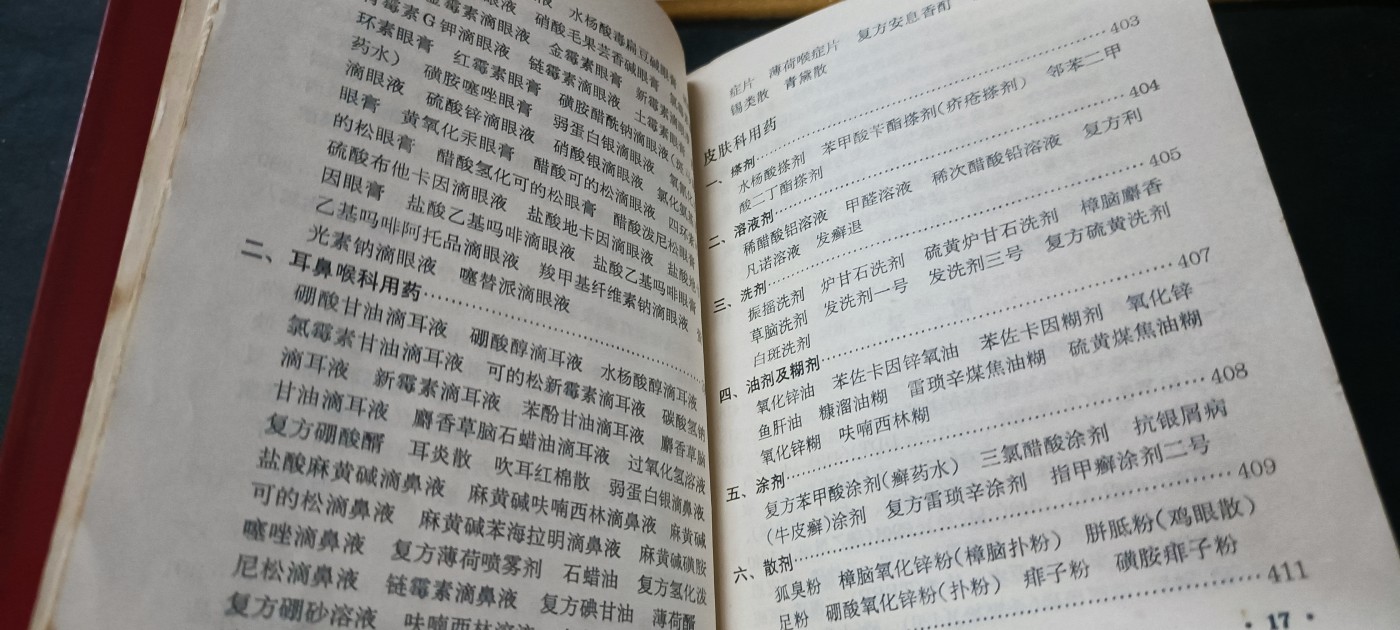 水杨酸毒扁豆碱眼膏
硝酸毛果芸香碱眼膏
青霉素G钾滴眼液 金霉素眼膏 新霉素
环素眼膏 链霉素滴眼液 土霉素眼
药水) 红霉素眼膏 磺胺醋酰钠滴眼液
滴眼液 磺胺噻唑眼膏 弱蛋白银滴眼液
眼膏 硫酸锌滴眼液 硝酸银滴眼液
的松眼膏 黄氧化汞眼膏 醋酸可的松滴眼液 四环素
硫酸布他卡因滴眼液 醋酸氢化可的松眼膏 醋酸泼尼松眼膏
因眼膏 盐酸乙基吗啡滴眼液 盐酸地卡因滴眼液 盐酸地
乙基吗啡阿托品滴眼液 盐酸乙基吗啡眼膏
光素钠滴眼液 噻替派滴眼液 羧甲基纤维素钠滴眼液
二、耳鼻喉科用药
硼酸甘油滴耳液 硼酸醇滴耳液 水杨酸醇滴耳液
氯霉素甘油滴耳液 可的松新霉素滴耳液 碳酸氢钠
滴耳液 新霉素滴耳液 苯酚甘油滴耳液 麝香草脑
甘油滴耳液 麝香草脑石蜡油滴耳液 过氧化氢溶液
复方硼酸醑 耳炎散 吹耳红棉散 弱蛋白银滴鼻液
盐酸麻黄碱滴鼻液 麻黄碱呋喃西林滴鼻液 麻黄碱
可的松滴鼻液 麻黄碱苯海拉明滴鼻液 麻黄碱磺胺
噻唑滴鼻液 复方薄荷喷雾剂 石蜡油 复方氢化泼
尼松滴鼻液 链霉素滴鼻液 复方碘甘油 薄荷醑
复方硼砂溶液 呋喃西林溶液
症片 薄荷喉症片 复方安息香酊
锡类散 青黛散
皮肤科用药 403
一、搽剂
水杨酸搽剂 苯甲酸苄酯搽剂(疥疮搽剂) 邻苯二甲
酸二丁酯搽剂
二、溶液剂 404
稀醋酸铝溶液 甲醛溶液 稀次醋酸铅溶液 复方利
凡诺溶液 发癣退
三、洗剂 405
振摇洗剂 炉甘石洗剂 硫黄炉甘石洗剂 樟脑麝香
草脑洗剂 发洗剂一号 发洗剂三号 复方硫黄洗剂
白斑洗剂
四、油剂及糊剂 407
氧化锌油 苯佐卡因锌氧油 苯佐卡因糊剂 氧化锌
鱼肝油 糠溜油糊 雷琐辛煤焦油糊 硫黄煤焦油糊
氧化锌糊 呋喃西林糊
五、涂剂 408
复方苯甲酸涂剂(癣药水) 三氯醋酸涂剂 抗银屑病
(牛皮癣)涂剂 复方雷琐辛涂剂 指甲癣涂剂二号
六、散剂 409
狐臭粉 樟脑氧化锌粉(樟脑扑粉) 胼胝粉(鸡眼散)
足粉 硼酸氧化锌粉(扑粉) 痱子粉 磺胺痱子粉
411
· 17 ·